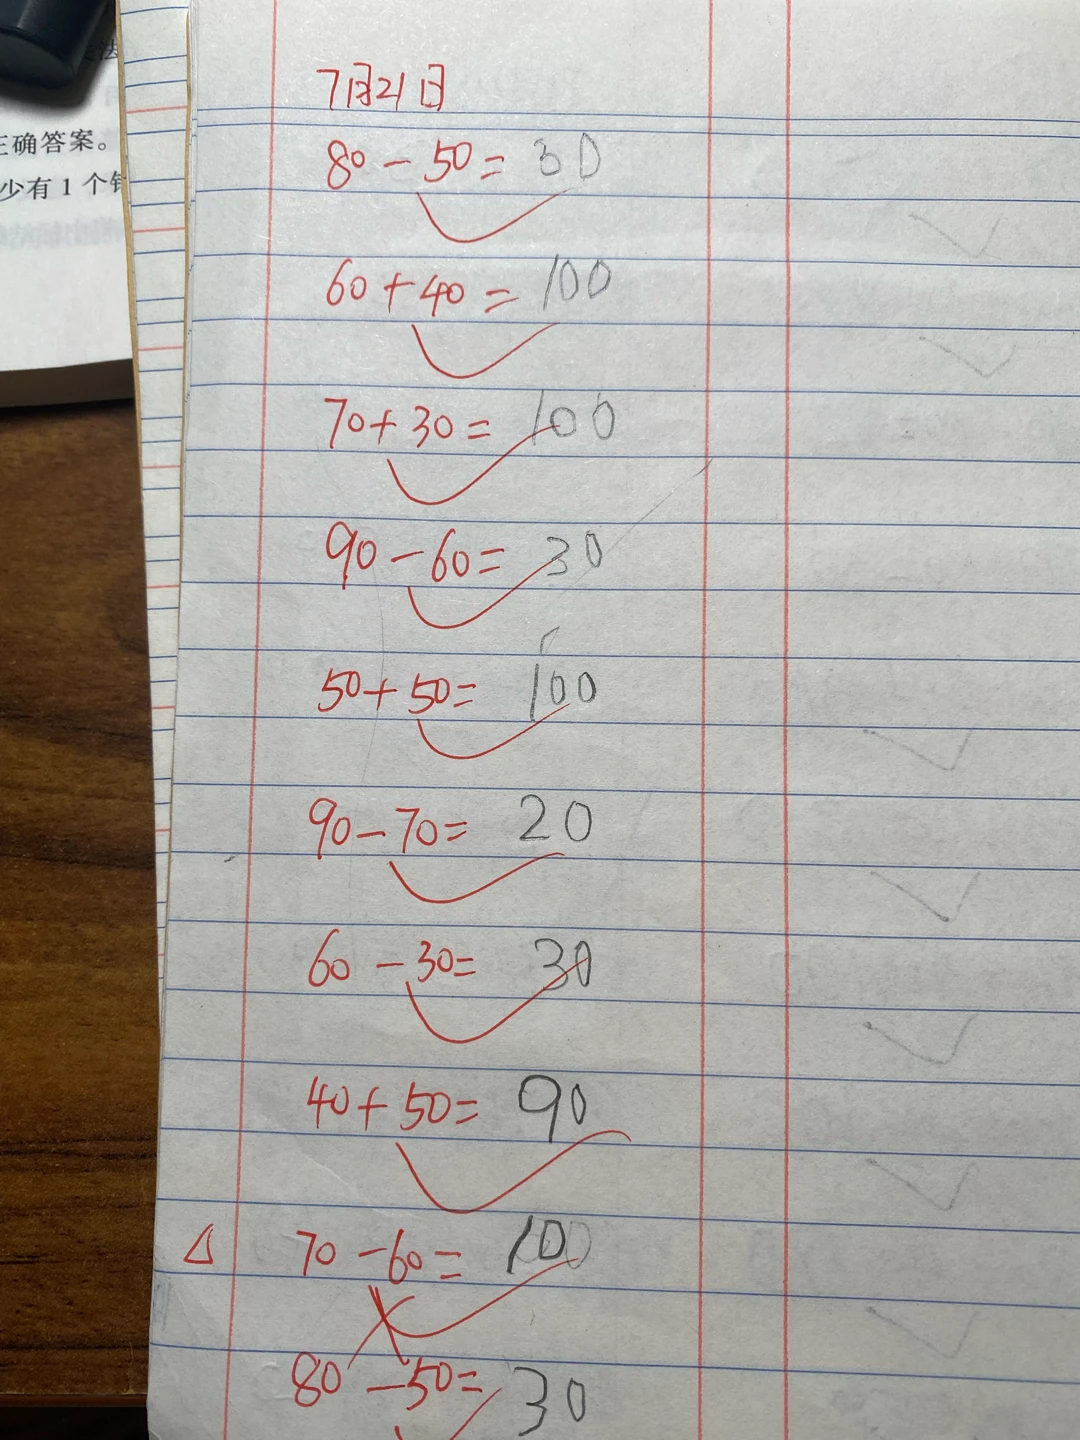 正确答案。
少有1个
7月21日
80-50=30
60+40=100
70+30=100
90-60=30
50+50=100
90-70=20
60-30=30
40+50=90
△ 70-60=10
80-50=30